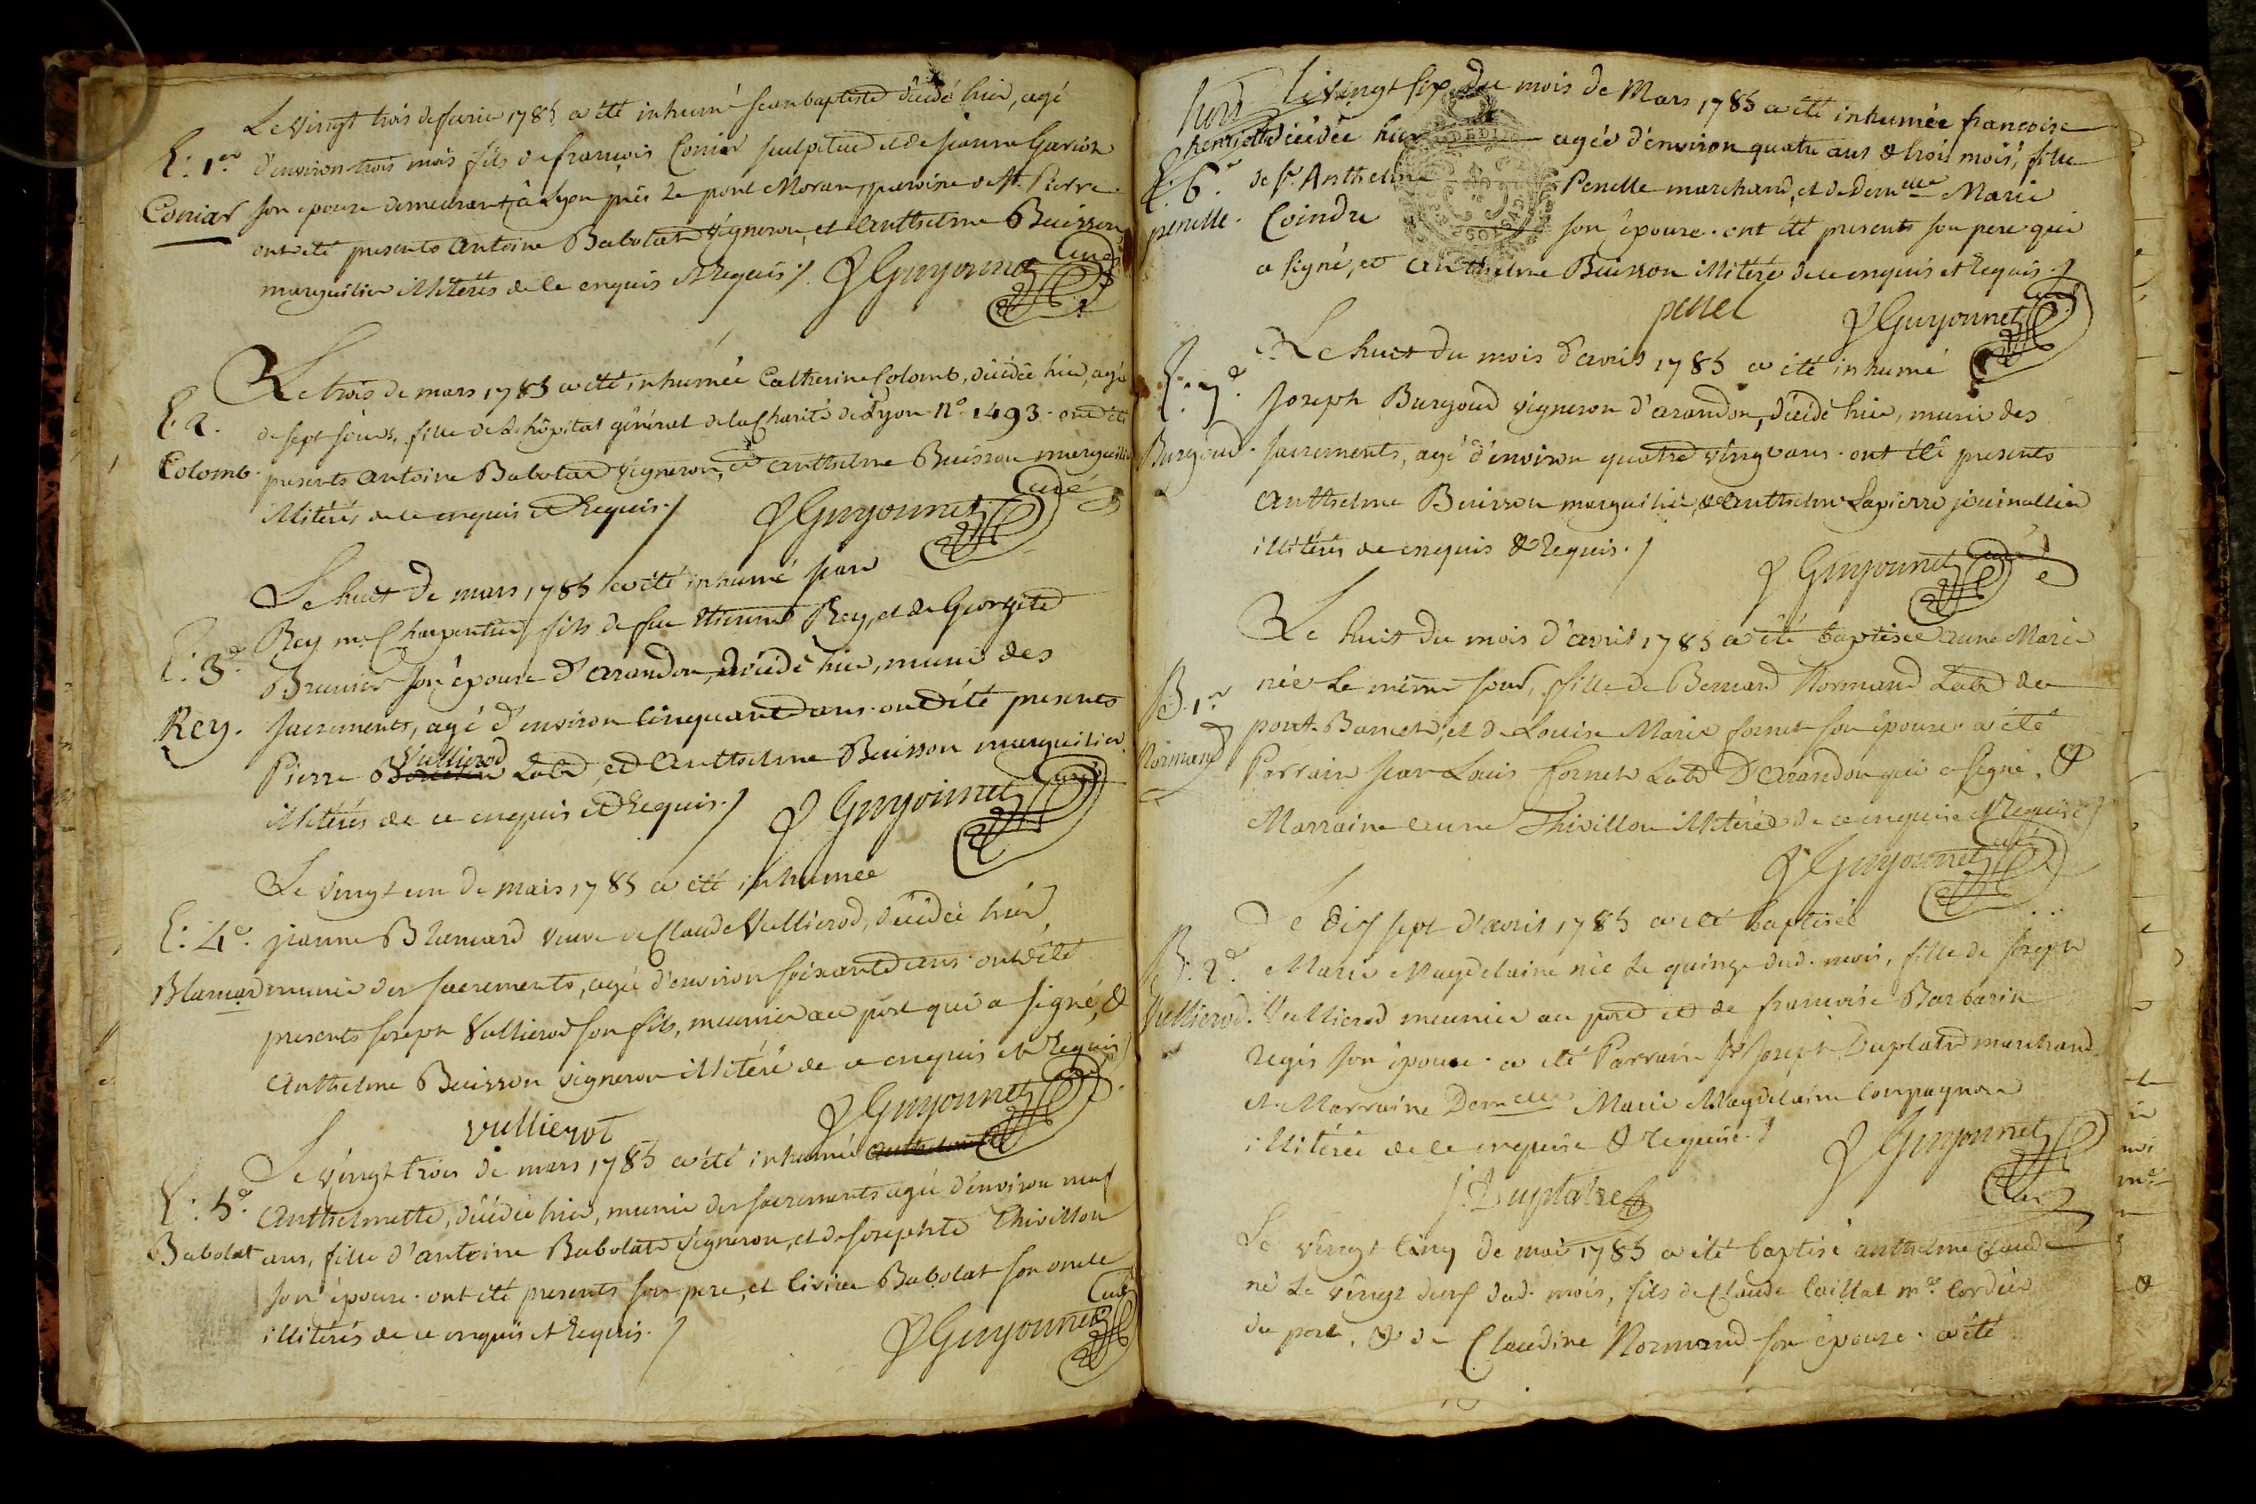 Le vingt trois de fevrier 1785 a été inhumé jean baptiste décédé hier, agé
E: 1er d'environ trois mois fils de françois Coniar sculpteur et de jeanne Gariot
Coniar son epouse demeurant à Lyon près le pont Moran, paroisse de St. Pierre.
ont été presents antoine Babolat vigneron, et Anthelme Buisson
marguilier illitérés de ce enquis et Requis ./. Guyonnet Curé
Le trois de mars 1785 a été inhumée Catherine Colomb, décédée hier, agée
E. 2. de sept jours, fille de L'hôpital général de la Charité de Lyon N° 1493. ont été
Colomb. presents antoine Babolat vigneron, et anthelme Buisson marguilier
illitérés de ce enquis et Requis ./ Guyonnet Curé
Le huit de mars 1785 a été inhumé jean
Rey me. Charpentier, fils de feu Etienne Rey, et de Georgete
E: 3e Brunier son épouse d'arandon, décédé hier, muni des
Rey. sacrements, agé d'environ Cinquante ans. ont été presents
Vullierod
Pierre Labr, et Anthelme Buisson marguilier
illitérés de ce enquis et Requis ./ Guyonnet Curé
Le vingt un de mars 1785 a été inhumée
E: 4e. jeanne Blamard veuve de Claude Vullierod, décédée hier
Blamard munie des sacrements, agée d'environ soixante ans. ont été
presents joseph Vullierod son fils, meunier au port qui a signé, &
Anthelme Buisson vigneron illitéré de ce enquis et Requis /
vullierot Guyonnet Curé
Le vingt trois de mars 1785 a été inhumé
E: 5e. Anthelmette, décédée hier, munie des sacrements agée d'environ neuf
Babolat ans, fille d'antoine Babolat vigneron, et de josephte Thivillon
son épouse. ont été presents son pere, et Babolat son oncle
illitérés de ce enquis et Requis. / Guyonnet Curé
Le vingt six du mois de Mars 1785 a été inhumée françoise
henriette décédée hier agée d'environ quatre ans & trois mois, fille
E: 6e. de sr. Anthelme Penelle marchand, et de Demelle Marie
penelle. Coindre son épouse. ont été presents son pere qui
a signé, et Anthelme Buisson illitéré de ce enquis et Requis ./
penel Guyonnet Curé
Le huit du mois d'avril 1785 a été inhumé
E: 7e. Joseph Burgoud vigneron d'arandon, décédé hier, muni des
Burgoud. sacrements, agé d'environ quatre vingt ans. ont été presents
Anthelme Buisson marguilier, & Anthelme Lapierre journallier
illitérés de ce enquis & Requis. / Guyonnet Curé
Le huit du mois d'avril 1785 a été baptisée anne Marie
B. 1er née Le même jour, fille de Bernard Normand Labr de
Normand pont-Bancet, et de Louise Marie fornet son épouse. a été
Parrain jean Louis fornet Labr D'arandon qui a signé, &
Marraine anne Thivillon illitérée de ce enquise et Requise /
Guyonnet Curé
Le dix sept d'avril 1785 a été baptisée
B. 2e. Marie Magdelaine née Le quinze dud. mois, fille de joseph
Vullierod. Vullierod meunier au port et de françoise Barbarin
Regis son épouse. a été Parrain sr. joseph Duplatre marchand
et Marraine Demelle Marie Magdelaine Compagnon
illitérée de ce enquise & Requise. / Guyonnet Curé
J. Duplatre
Le vingt cinq de mai 1785 a été baptisé anthelme Claude
né Le vingt deux dud. mois, fils de Claude Caillat me. Cordier
du port, & de Claudine Normand son épouse. a été